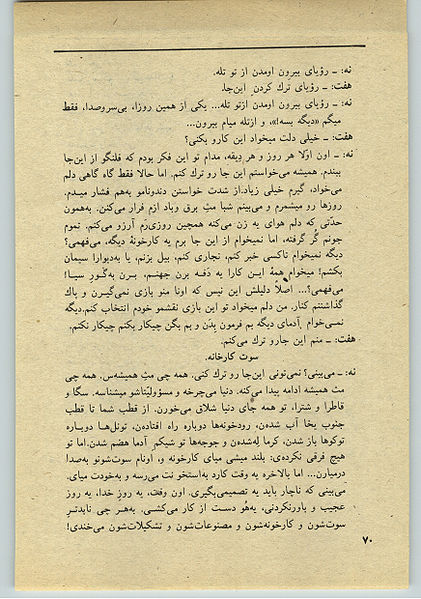 نه: ـ رؤیای بیرون اومدن از تو تله.
هفت: ـ رؤیای ترك كردن این‌جا.
نه: ـ رؤیای بیرون اومدن ازتو تله... یكی از همین روزا، بی‌سروصدا، فقط
میگم «دیگه بسه!»، و ازتله میام بیرون...
هفت: ـ خیلی دلت میخواد این كارو بكنی؟
نه: ـ اون اوّلا هر روز و هر دیقه، مدام تو این فكر بودم كه فلنگو از این‌جا
ببندم. همیشه می‌خواستم این جا رو ترك كنم. اما حالا فقط گاه گاهی دلم
می‌خواد، گیرم خیلی زیاد. از شدت خواستن دندونامو به‌هم فشار میدم.
روزها رو میشمرم و می‌بینم شبا مثِ برق وباد ازم فرار می‌كنن. به‌همون
حدّتی كه دلم هوای یه زن می‌كنه همچین روزی‌رم آرزو می‌كنم. تموم
جونم گُر گرفته، اما نمیخوام از این جا برم یه كارخونهٔ دیگه، می‌فهمی؟
دیگه نمیخوام تاكسی خبر كنم، نجاری كنم، بیل بزنم، یا به‌دیوارا سیمان
بكشم! میخوام همهٔ ایـن كارا یه دَفـه برن جهنـم، بـرن به‌گـورِ سیـا!
می‌فهمی؟... اصلاً دلیلش این نیس كه اونا منو بازی نمی‌گیـرن و پاك
گذاشتنم كنار. من دلم میخواد تو این بازی نقشمو خودم انتخاب كنم. دیگه
نمـی‌خوام آدمای دیگه بم فرمون بِدَن و بم بگن چیكار بكنم چیكار نكنم.
هفت: ـ منم این جارو ترك می‌كنم.
سوت كارخانه.
نه: ـ می‌بینی؟ نمی‌تونی این‌جا رو ترك كنی. همه چی مثِ همیشه‌س. همه چی
مث همیشه ادامه پیدا می‌كنه. دنیا می‌چرخه و مسؤولیّتاشو میشناسه. سگا و
قاطرا و شترا، تو همه جای دنیا شلاق می‌خورن. از قطب شما تا قطب
جنوب یخا آب شده‌ن، رودخونه‌ها دوباره راه افتاده‌ن، تونل‌هـا دوبـاره
توكوها باز شدن، كرما له‌شده‌ن و جوجه‌ها تو شیكم آدما هضم شدن. اما تو
هیچ فرقی نكرده‌ی: بلند میشی میای كارخونه و، اونام سوت‌شونو به‌صدا
درمیارن... اما بالاخره یه وقت كارد به‌استخو نت می‌رسه و به‌خودت میای.
می‌بینی كه ناچار باید یه تصمیمی‌بگیری. اون وقت، یه روزِ خدا، یه روز
عجیب و باورنكردنی، یه‌هُو دست از كار می‌كشـی. به‌هـر جی نابدتـرِ
سوت‌شون و كارخونه‌شون و مصنوعات‌شون و تشكیلات‌شون می‌خندی!
۷۰